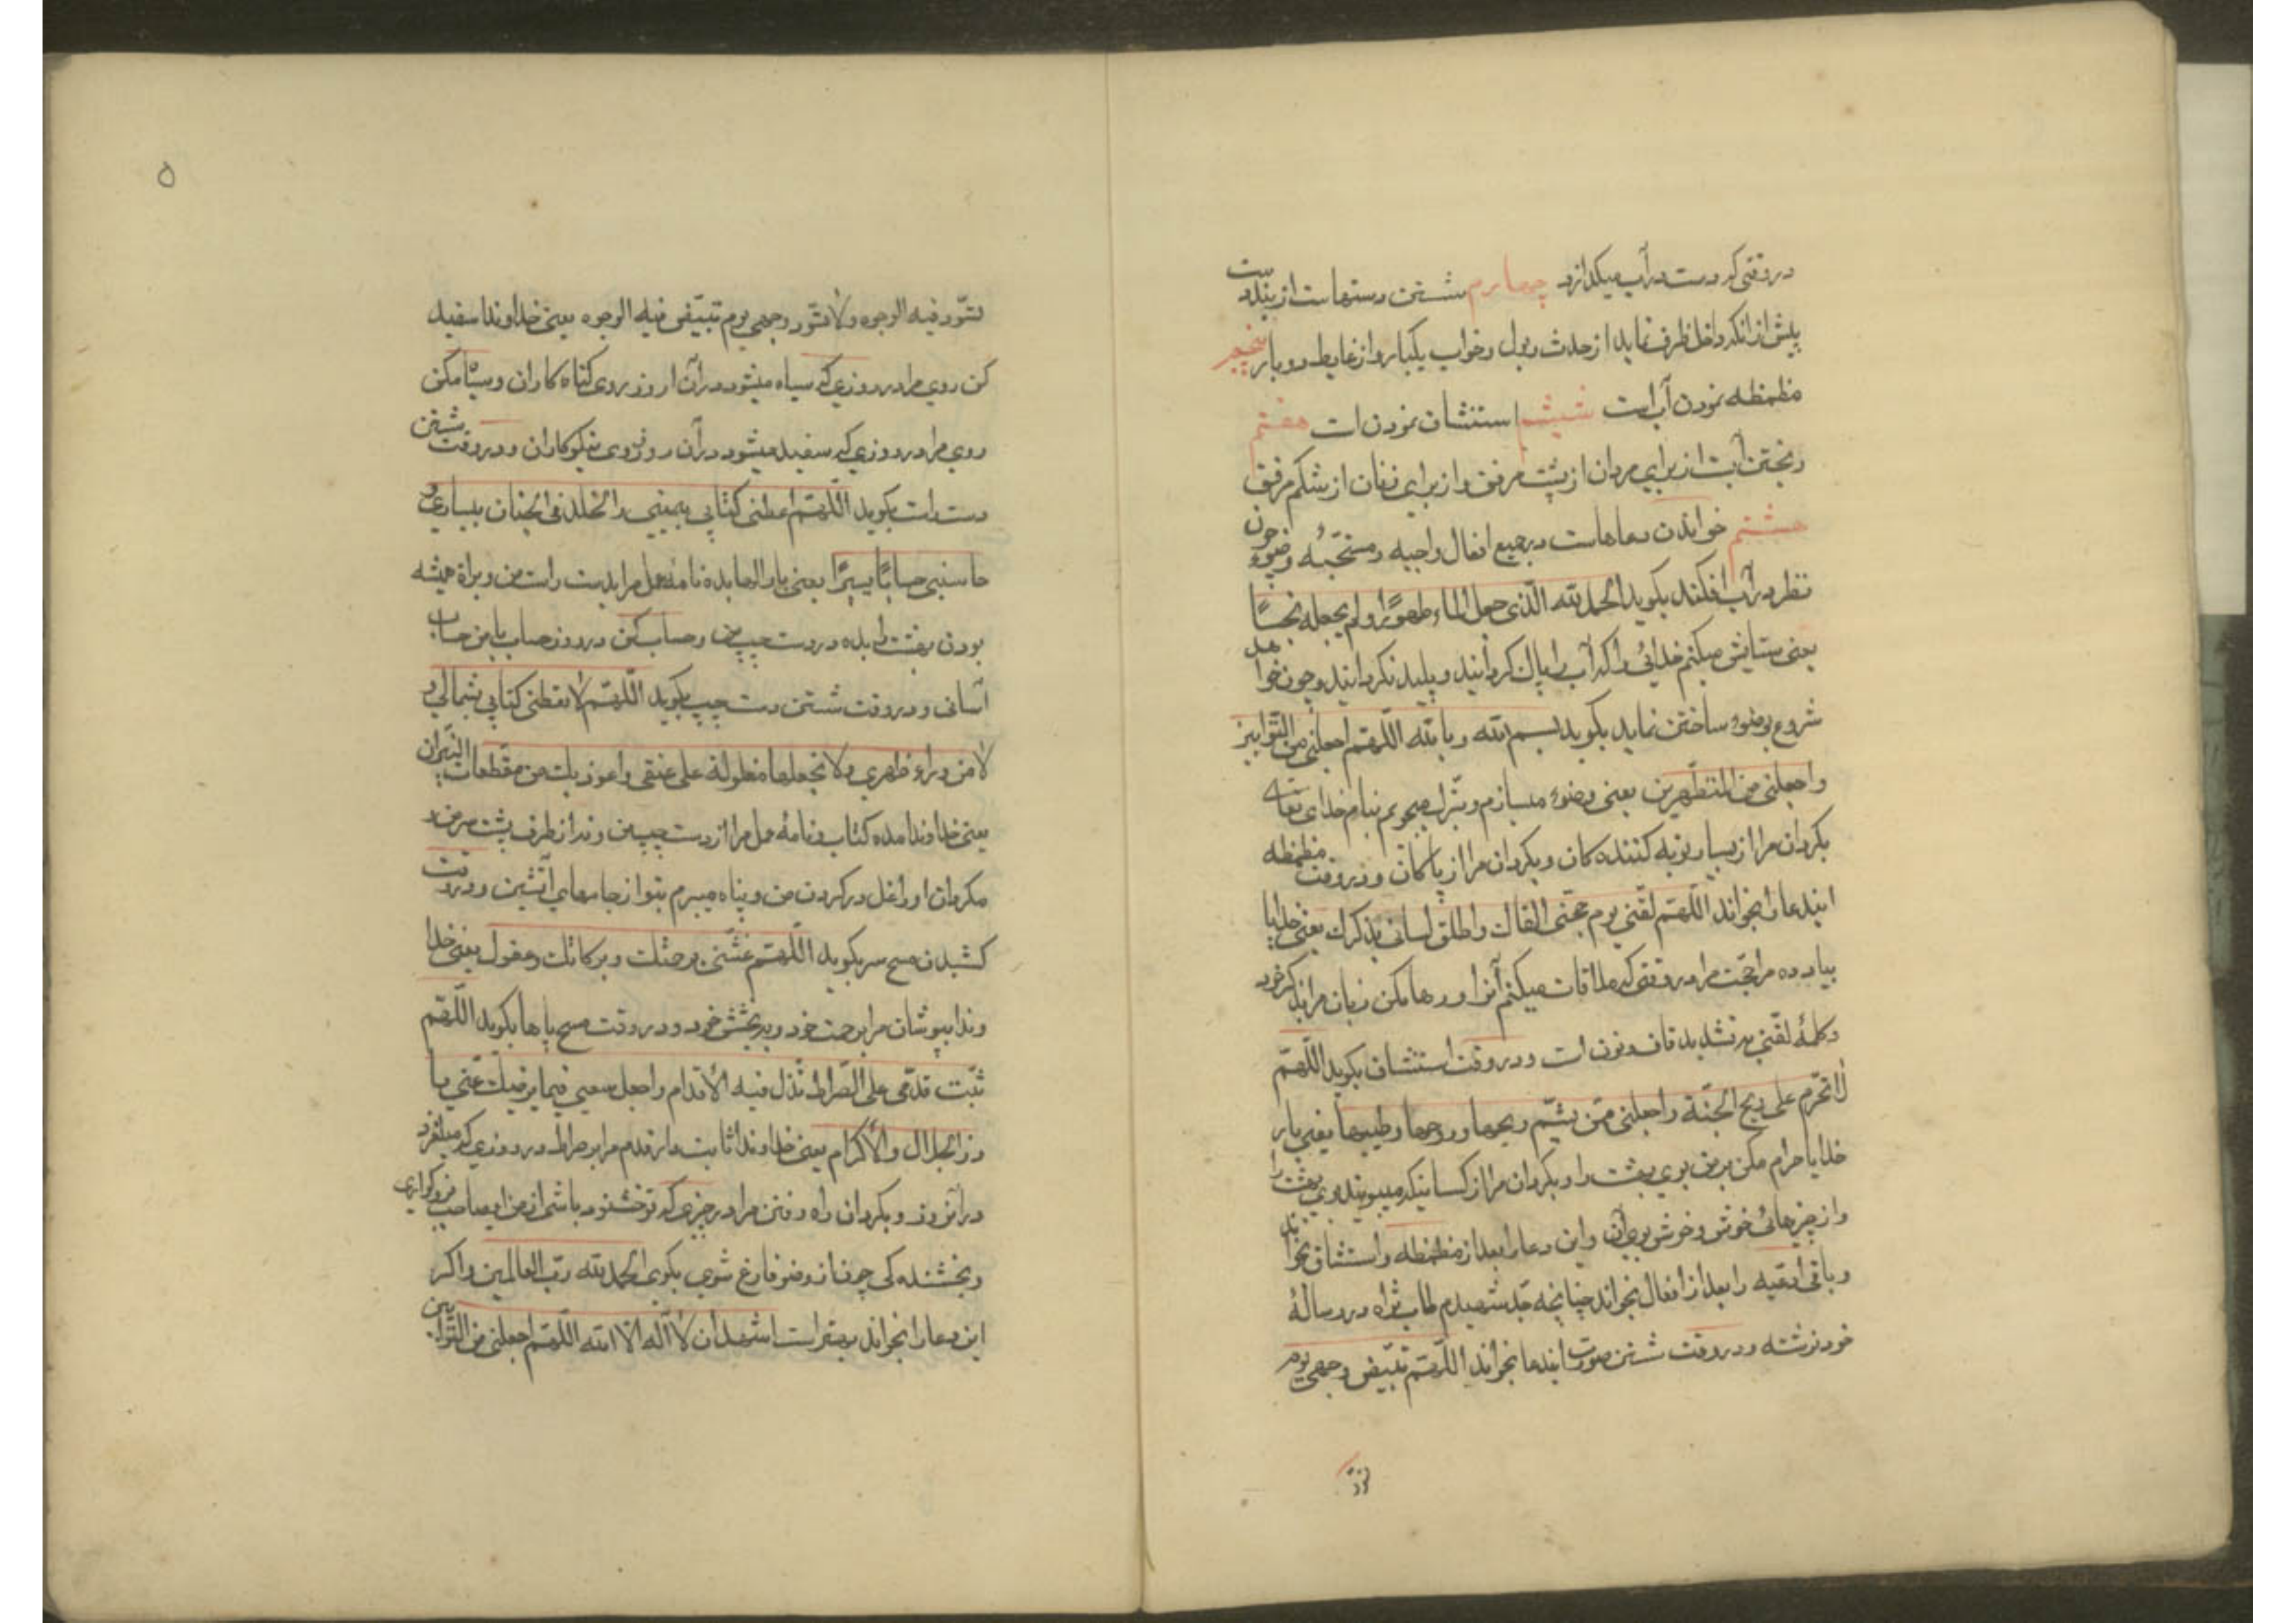 در وقتی که دست در آب میکذارد چهارم شستن دستهاست از بند دست
پیش از انکه داخل ظرف نماید از حدث بول و خواب یکبار و از غایط دو بار پنجم
مظمظه نمودن آب است ششم استنشاق نمودن است هفتم
ریختن آبست از برای مردان از پشت مرفق و از برای زنان از شکم مرفق
هشتم خواندن دعاهاست در جمیع افعال واجبه و مستحبّهٔ وضوء چون
نظر در آب افکند بکوید الحمد لله الّذی جعل الماء طهورًا و لم یجعله نجسًا
یعنی ستایش میکنم خدائی را که آب را پاک کردانید و پلید نکردانید و چون خواهد
شروع بوضوء ساختن نماید بکوید بسم الله و بالله اللّهمّ اجعلنی من التّوابین
واجعلنی من المتطّهرین یعنی وضوء میسازم و تبّرک میجویم بنام خدای تعالی
بکردان مرا از بسیار توبه کننده کان و بکردان مرا از پاکان و در وقت مظمظه
ایندعا را بخواند اللّهمّ لقّنی یوم حجتی القاک و اطلق لسانی بذکرک یعنی خدایا
بیاد ده مرا حجّت مرا در وقتی که ملاقات میکنم آنرا و رها مکن زبان مرا بذکر خود
و کلمهٔ لقّنی بتشدید قاف و نون است و در وقت استنشاق بکوید اللّهمّ
لا تحّرم علی ریح الجنّة و اجعلنی ممّن یشّم ریحها و روحها و طیبها یعنی بار
خدایا حرام مکن بر من بوی بهشت را و بکردان مرا از کسانیکه میبویند بوی بهشت را
و از چیزهائی خوش و خوش بوی آن و این دعا را بعد از مظمظه و استنشاق بخواند
و باقی ادعیه را بعد از افعال بخواند چنانچه جّد شهیدم طاب ثراه در رسالهٔ
خود نوشته و در وقت شستن صورت ایندعا بخواند اللّهمّ تبّیض وجهی یوم
تسّود
۵
تسّود فیه الوجوه و لا تسّود وجهی یوم تبیّض فیه الوجوه یعنی خداوندا سفید
کن روی مرا در روزی که سیاه میشود در آن روز روی کناه کاران و سیاه مکن
روی مرا در روزی که سفید میشود در آن روز روی نیکوکاران و در وقت شستن
دست راست بکوید اللّهمّ اعطنی کتابی بیمینی و الخلد فی الجنان بیساری و
حاسبنی حسابًا یسیرًا یعنی بار الها بده نامهٔ عمل مرا بدست راست من و براة همیشه
بودن بهشت را بده در دست چپ من و حساب کن در روز حساب با من حساب
آسانی و در وقت شستن دست چپ بکوید اللّهمّ لا تعطنی کتابی بشمالی و
لا من وراء ظهری و لا تجعلها مغلولة علی عنقی و اعوذ بک من مقّطعات النّیران
یعنی خداوندا مده کتاب و نامهٔ عمل مرا از دست چپ من و نه از طرف پشت سر من و
مکردان او را غل در کردن من و پناه میبرم بتو از جامهای آتشین و در وقت
کشیدن مسح سر بکوید اللّهمّ غشّنی برحمتک و برکاتک و عفوک یعنی خدا
وندا بپوشان مرا برحمت خود و ببخشش خود و در وقت مسح پاها بکوید اللّهمّ
ثبّت قدمّی علی الصّراط تذل فیه الاقدام و اجعل سعیی فیما یرضیک عنّی یا
ذو الجلال و الاکرام یعنی خداوندا ثابت دار قدم مرا بر صراط در روزی که میلغزد
در آنروز و بکردان راه رفتن مرا در چیزی که تو خشنود باشی از من ای صاحب بزرکواری
و بخشنده کی چون از وضو فارغ شوی بکوی الحمد لله ربّ العالمین و اکر
این دعا را بخواند بهتر است اشهد ان لا اله الا الله اللّهمّ اجعلنی من التّوابین